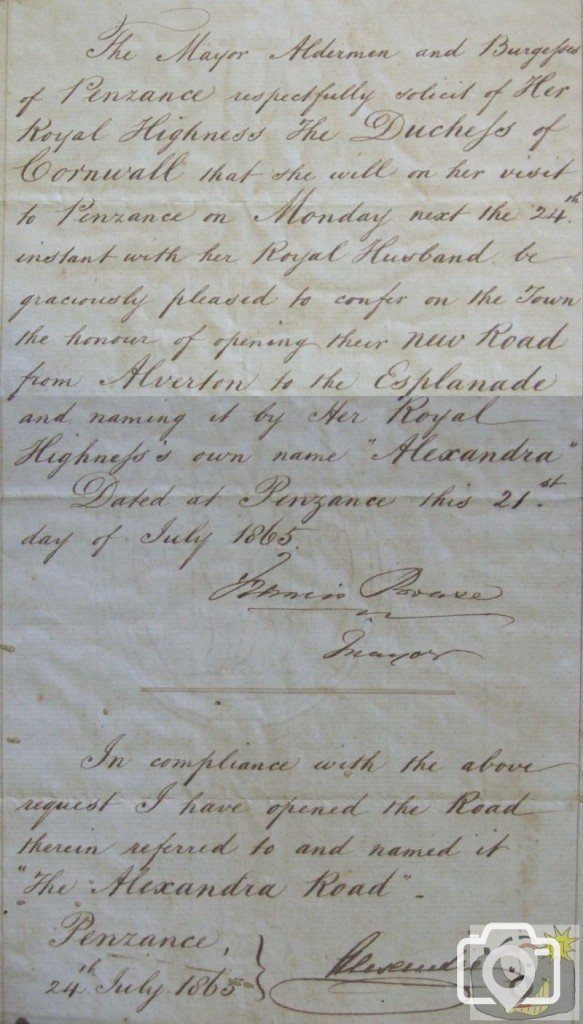 The Mayor Aldermen and Burgesses
of Penzance respectfully solicit of Her
Royal Highness The Duchess of
Cornwall that she will on her visit
to Penzance on Monday next the 24th
instant with her Royal Husband be
graciously pleased to confer on the Town
the honour of opening their new Road
from Alverton to the Esplanade
and naming it by Her Royal
Highness's own name "Alexandra"
Dated at Penzance this 21st
day of July 1865.
Francis Boase
Mayor
In compliance with the above
request I have opened the Road
therein referred to and named it
"The Alexandra Road".
Penzance,
24th July 1865 }
Alexandra